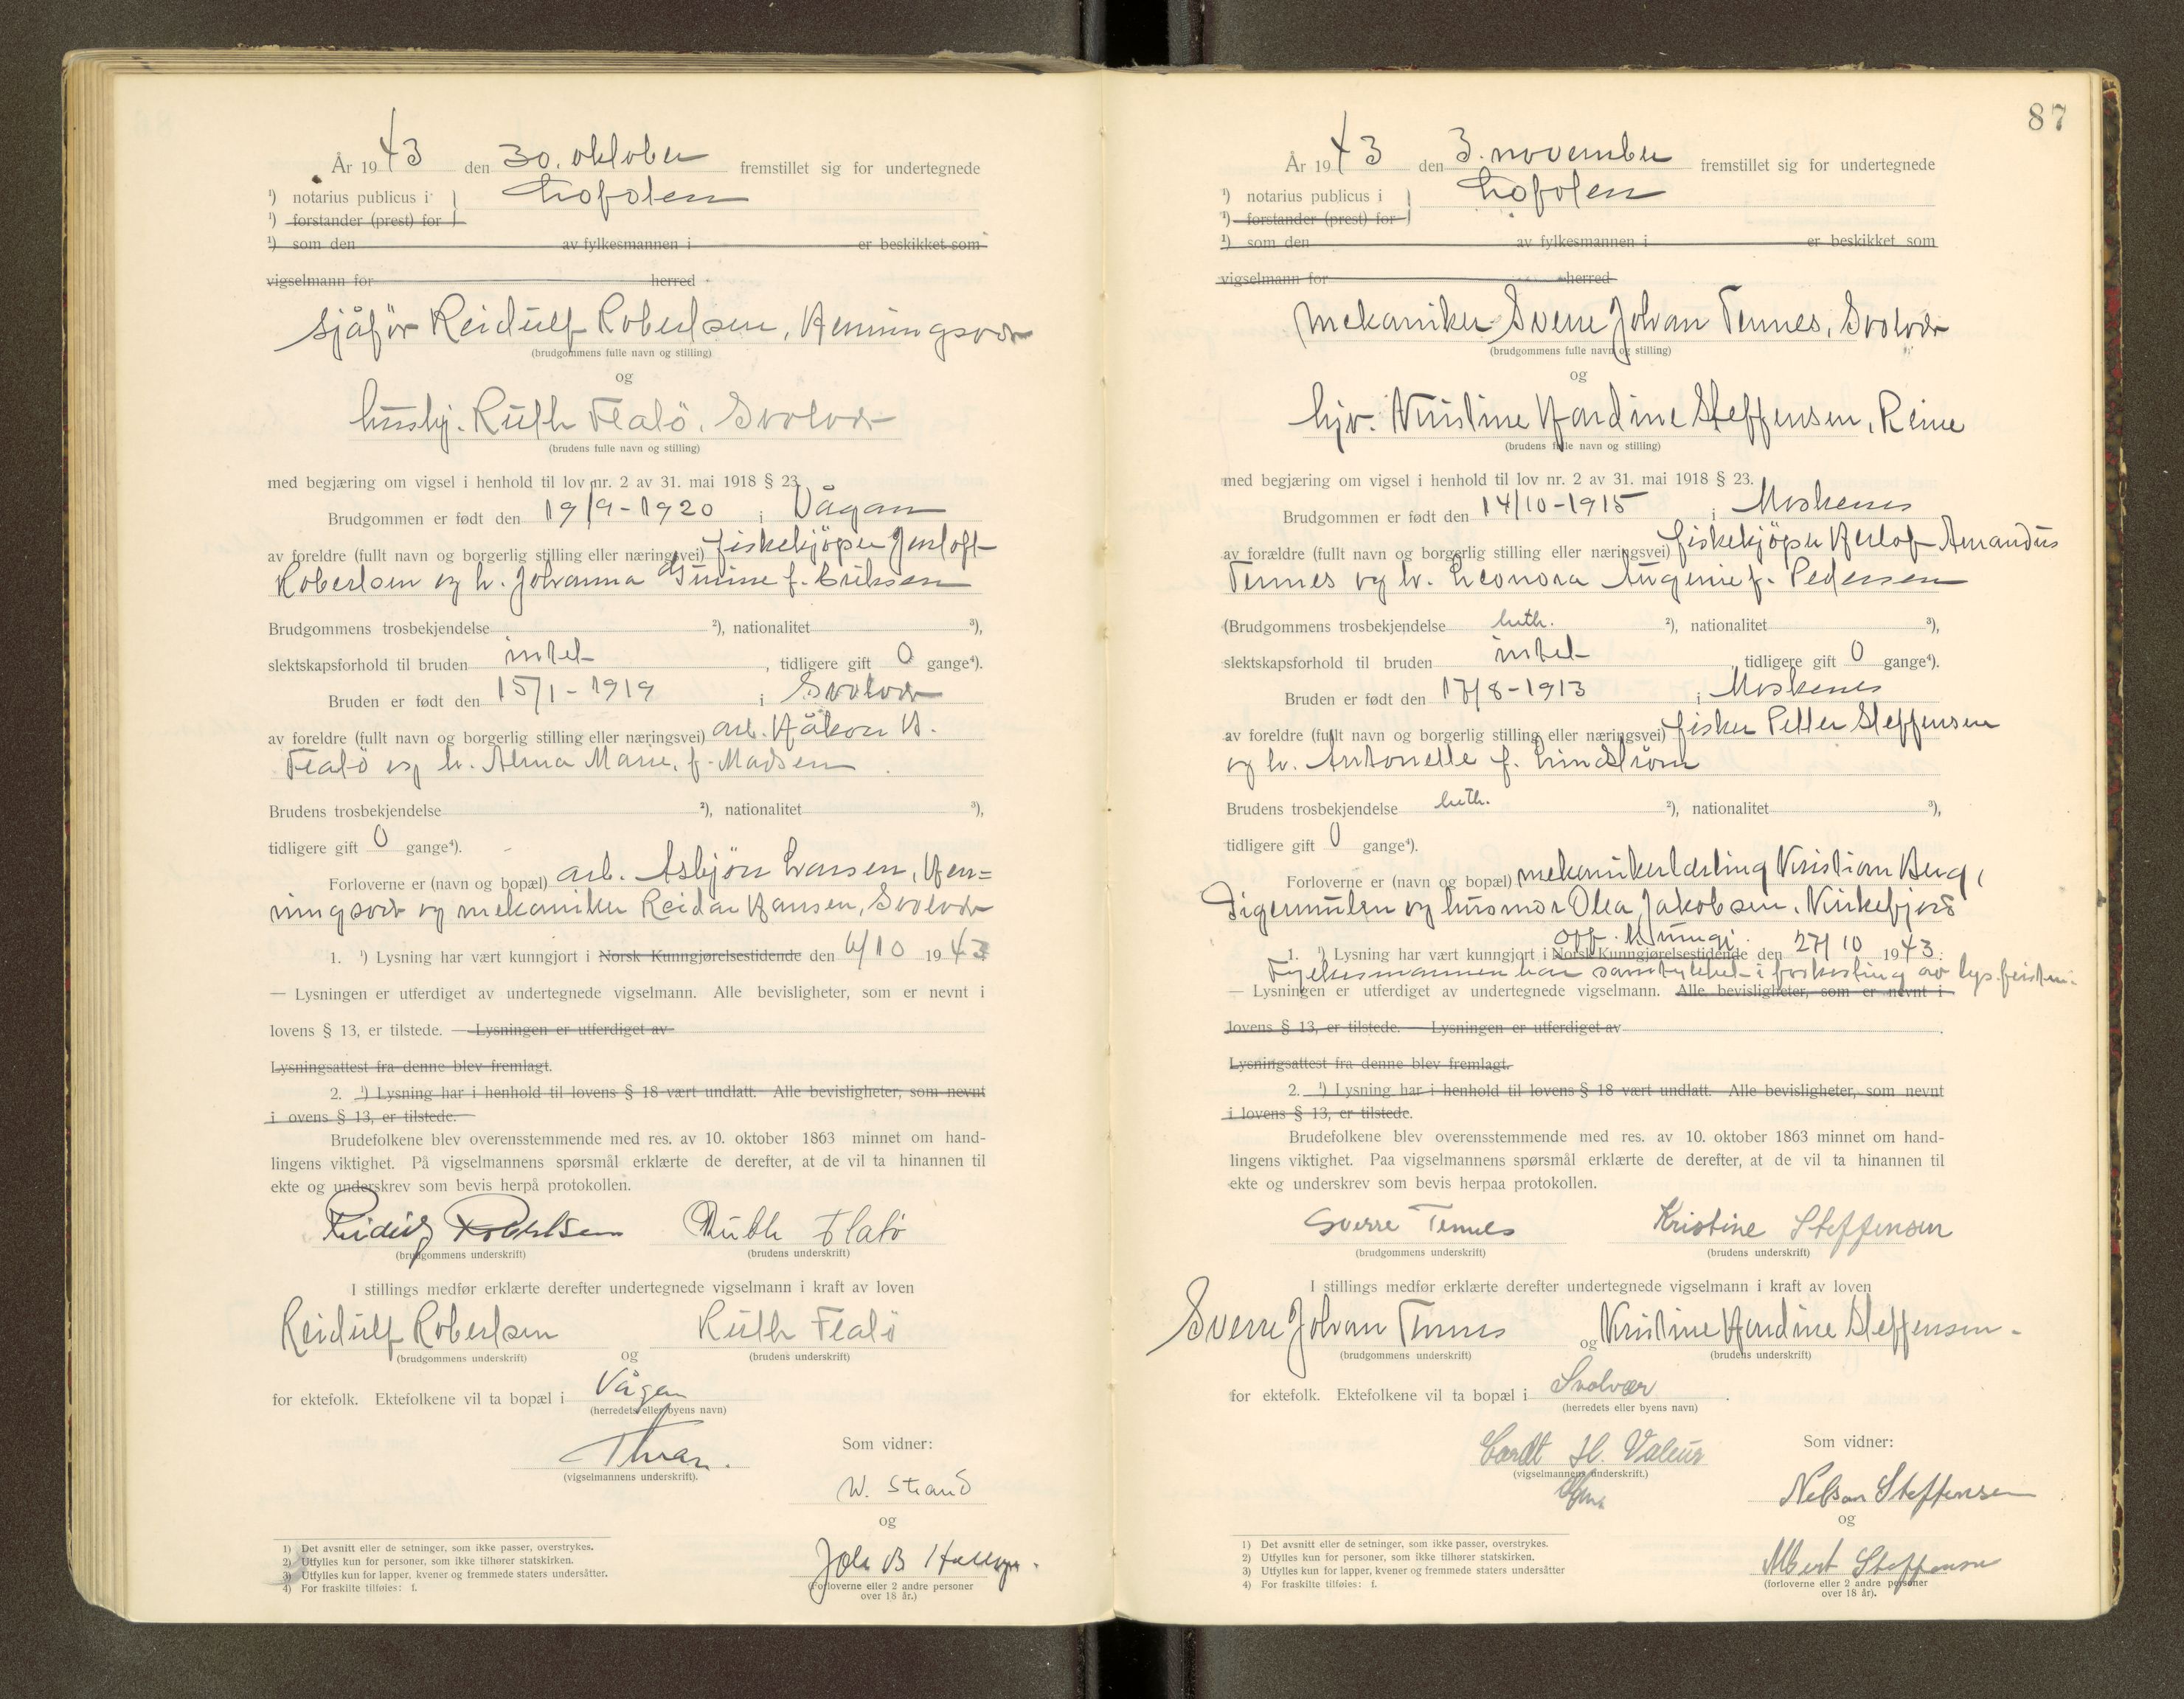 År 1943 den 30. oktober fremstillet sig for undertegnede
¹) notarius publicus i } Lofoten
¹) forstander (prest) for
¹) som den av fylkesmannen i er beskikket som
vigselmann for herred
sjåfør Reidulf Robertsen, Henningsvær
(brudgommens fulle navn og stilling)
og
hushj. Ruth Flatö, Svolvær
(brudens fulle navn og stilling)
med begjæring om vigsel i henhold til lov nr. 2 av 31. mai 1918 § 23.
Brudgommen er født den 19/9-1920 i Vågan
av foreldre (fullt navn og borgerlig stilling eller næringsvei) fiskekjöper Jenloft
Robertsen og h. Johanna Gunine f. Eriksen
Brudgommens trosbekjendelse ²), nationalitet ³),
slektskapsforhold til bruden intet, tidligere gift 0 gange⁴).
Bruden er født den 15/1-1919 i Svolvær
av foreldre (fullt navn og borgerlig stilling eller næringsvei) arb. Håkon H.
Flatö og h. Alma Marie, f. Madsen.
Brudens trosbekjendelse ²), nationalitet ³),
tidligere gift 0 gange⁴).
Forloverne er (navn og bopæl) arb. Asbjörn Larsen, Hen=
ningsvær og mekaniker Reidar Hansen, Svolvær
1. ¹) Lysning har vært kunngjort i Norsk Kunngjørelsestidende den 6/10 1943
— Lysningen er utferdiget av undertegnede vigselmann. Alle bevisligheter, som er nevnt i
lovens § 13, er tilstede. — Lysningen er utferdiget av
Lysningsattest fra denne blev fremlagt.
2. ¹) Lysning har i henhold til lovens § 18 vært undlatt. Alle bevisligheter, som nevnt
i ovens § 13, er tilstede.
Brudefolkene blev overensstemmende med res. av 10. oktober 1863 minnet om hand-
lingens viktighet. På vigselmannens spørsmål erklærte de derefter, at de vil ta hinannen til
ekte og underskrev som bevis herpå protokollen.
Reidulf Robertsen Ruth Flatö
(brudgommens underskrift) (brudens underskrift)
I stillings medfør erklærte derefter undertegnede vigselmann i kraft av loven
Reidulf Robertsen og Ruth Flatö
(brudgommens underskrift) (brudens underskrift)
for ektefolk. Ektefolkene vil ta bopæl i Vågan
(herredets eller byens navn)
(vigselmannens underskrift).
Som vidner:
W. Strand
og
(Forloverne eller 2 andre personer
over 18 år.)
1) Det avsnitt eller de setninger, som ikke passer, overstrykes.
2) Utfylles kun for personer, som ikke tilhører statskirken.
3) Utfylles kun for lapper, kvener og fremmede staters undersåtter.
4) For fraskilte tilføies: f.
87
År 1943 den 3. november fremstillet sig for undertegnede
¹) notarius publicus i } Lofoten
¹) forstander (prest) for
¹) som den av fylkesmannen i er beskikket som
vigselmann for herred
mekaniker Sverre Johan Tennes, Svolvær
(brudgommens fulle navn og stilling)
og
hjv. Kristine Hardine Steffensen, Reine
(brudens fulle navn og stilling)
med begjæring om vigsel i henhold til lov nr. 2 av 31. mai 1918 § 23.
Brudgommen er født den 14/10-1915 i Moskenes
av forældre (fullt navn og borgerlig stilling eller næringsvei) fiskekjöper Herlof Amandus
Tennes og h. Leonora Augenie f. Pedersen
(Brudgommens trosbekjendelse luth. ²), nationalitet ³),
slektskapsforhold til bruden intet tidligere gift 0 gange⁴).
Bruden er født den 17/8-1913 i Moskenes
av foreldre (fullt navn og borgerlig stilling eller næringsvei) fisker Petter Steffensen
og h. Antonelle f. Lindström
Brudens trosbekjendelse luth. ²), nationalitet ³),
tidligere gift 0 gange⁴).
Forloverne er (navn og bopæl) mekanikerlærling Kristian Berg,
Digermulen og husmor Olea Jakobsen, Kirkefjord
off. kunngj.
1. ¹) Lysning har vært kunngjort i Norsk Kunngjørelsestidende den 27/10 1943.
Fylkesmannen har samtykket i forkorting av lys.fristen.
— Lysningen er utferdiget av undertegnede vigselmann. Alle bevisligheter, som er nevnt i
lovens § 13, er tilstede. — Lysningen er utferdiget av
Lysningsattest fra denne blev fremlagt.
2. ¹) Lysning har i henhold til lovens § 18 vært undlatt. Alle bevisligheter, som nevnt
i lovens § 13, er tilstede.
Brudefolkene blev overensstemmende med res. av 10. oktober 1863 minnet om hand-
lingens viktighet. Paa vigselmannens spørsmål erklærte de derefter, at de vil ta hinannen til
ekte og underskrev som bevis herpaa protokollen.
Sverre Tennes Kristine Steffensen
(brudgommens underskrift) (brudens underskrift)
I stillings medfør erklærte derefter undertegnede vigselmann i kraft av loven
Sverre Johan Tennes og Kristine Hardine Steffensen
(brudgommens underskrift) (brudens underskrift)
for ektefolk. Ektefolkene vil ta bopæl i Svolvær.
(herredets eller byens navn)
Cardt H. Valeur
(vigselmannens underskrift.)
Som vidner:
Nelson Steffensen
og
Albert Steffensen
(forloverne eller 2 andre personer
over 18 år).
1) Det avsnitt eller de setninger, som ikke passer, overstrykes.
2) Utfylles kun for personer, som ikke tilhører statskirken.
3) Utfylles kun for lapper, kvener og fremmede staters undersåtter
4) For fraskilte tilføies: f.